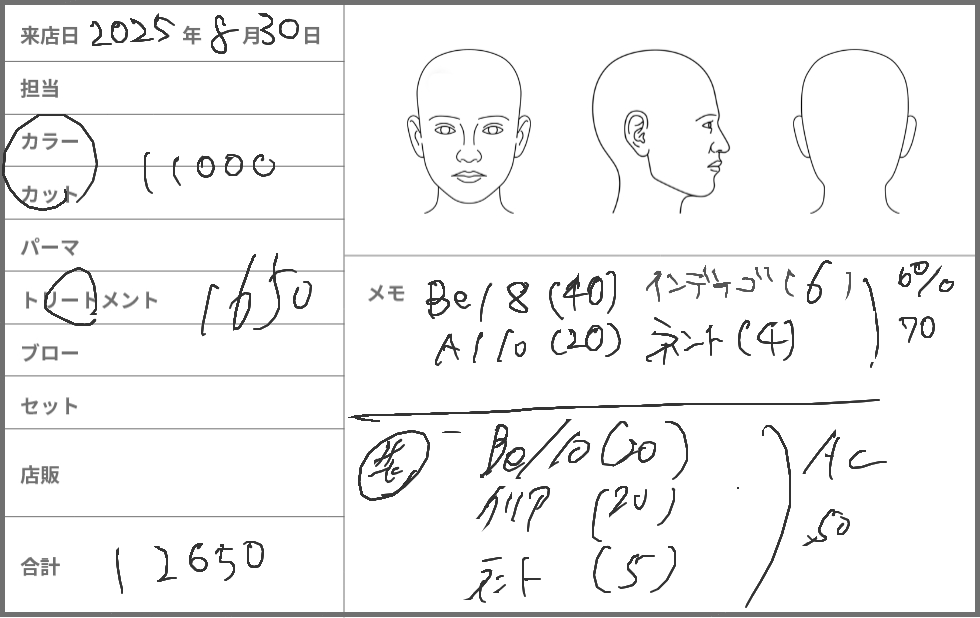 来店日 2025 年 8 月 30 日
担当
カラー
11000
カット
パーマ
トリートメント 1650
ブロー
セット
店販
合計 12650
メモ Be/8 (40) インディゴ (6) 6%
A/10 (20) ミント (4) 70
Be/10 (20) Ac
クリア (20) 50
ミント (5)